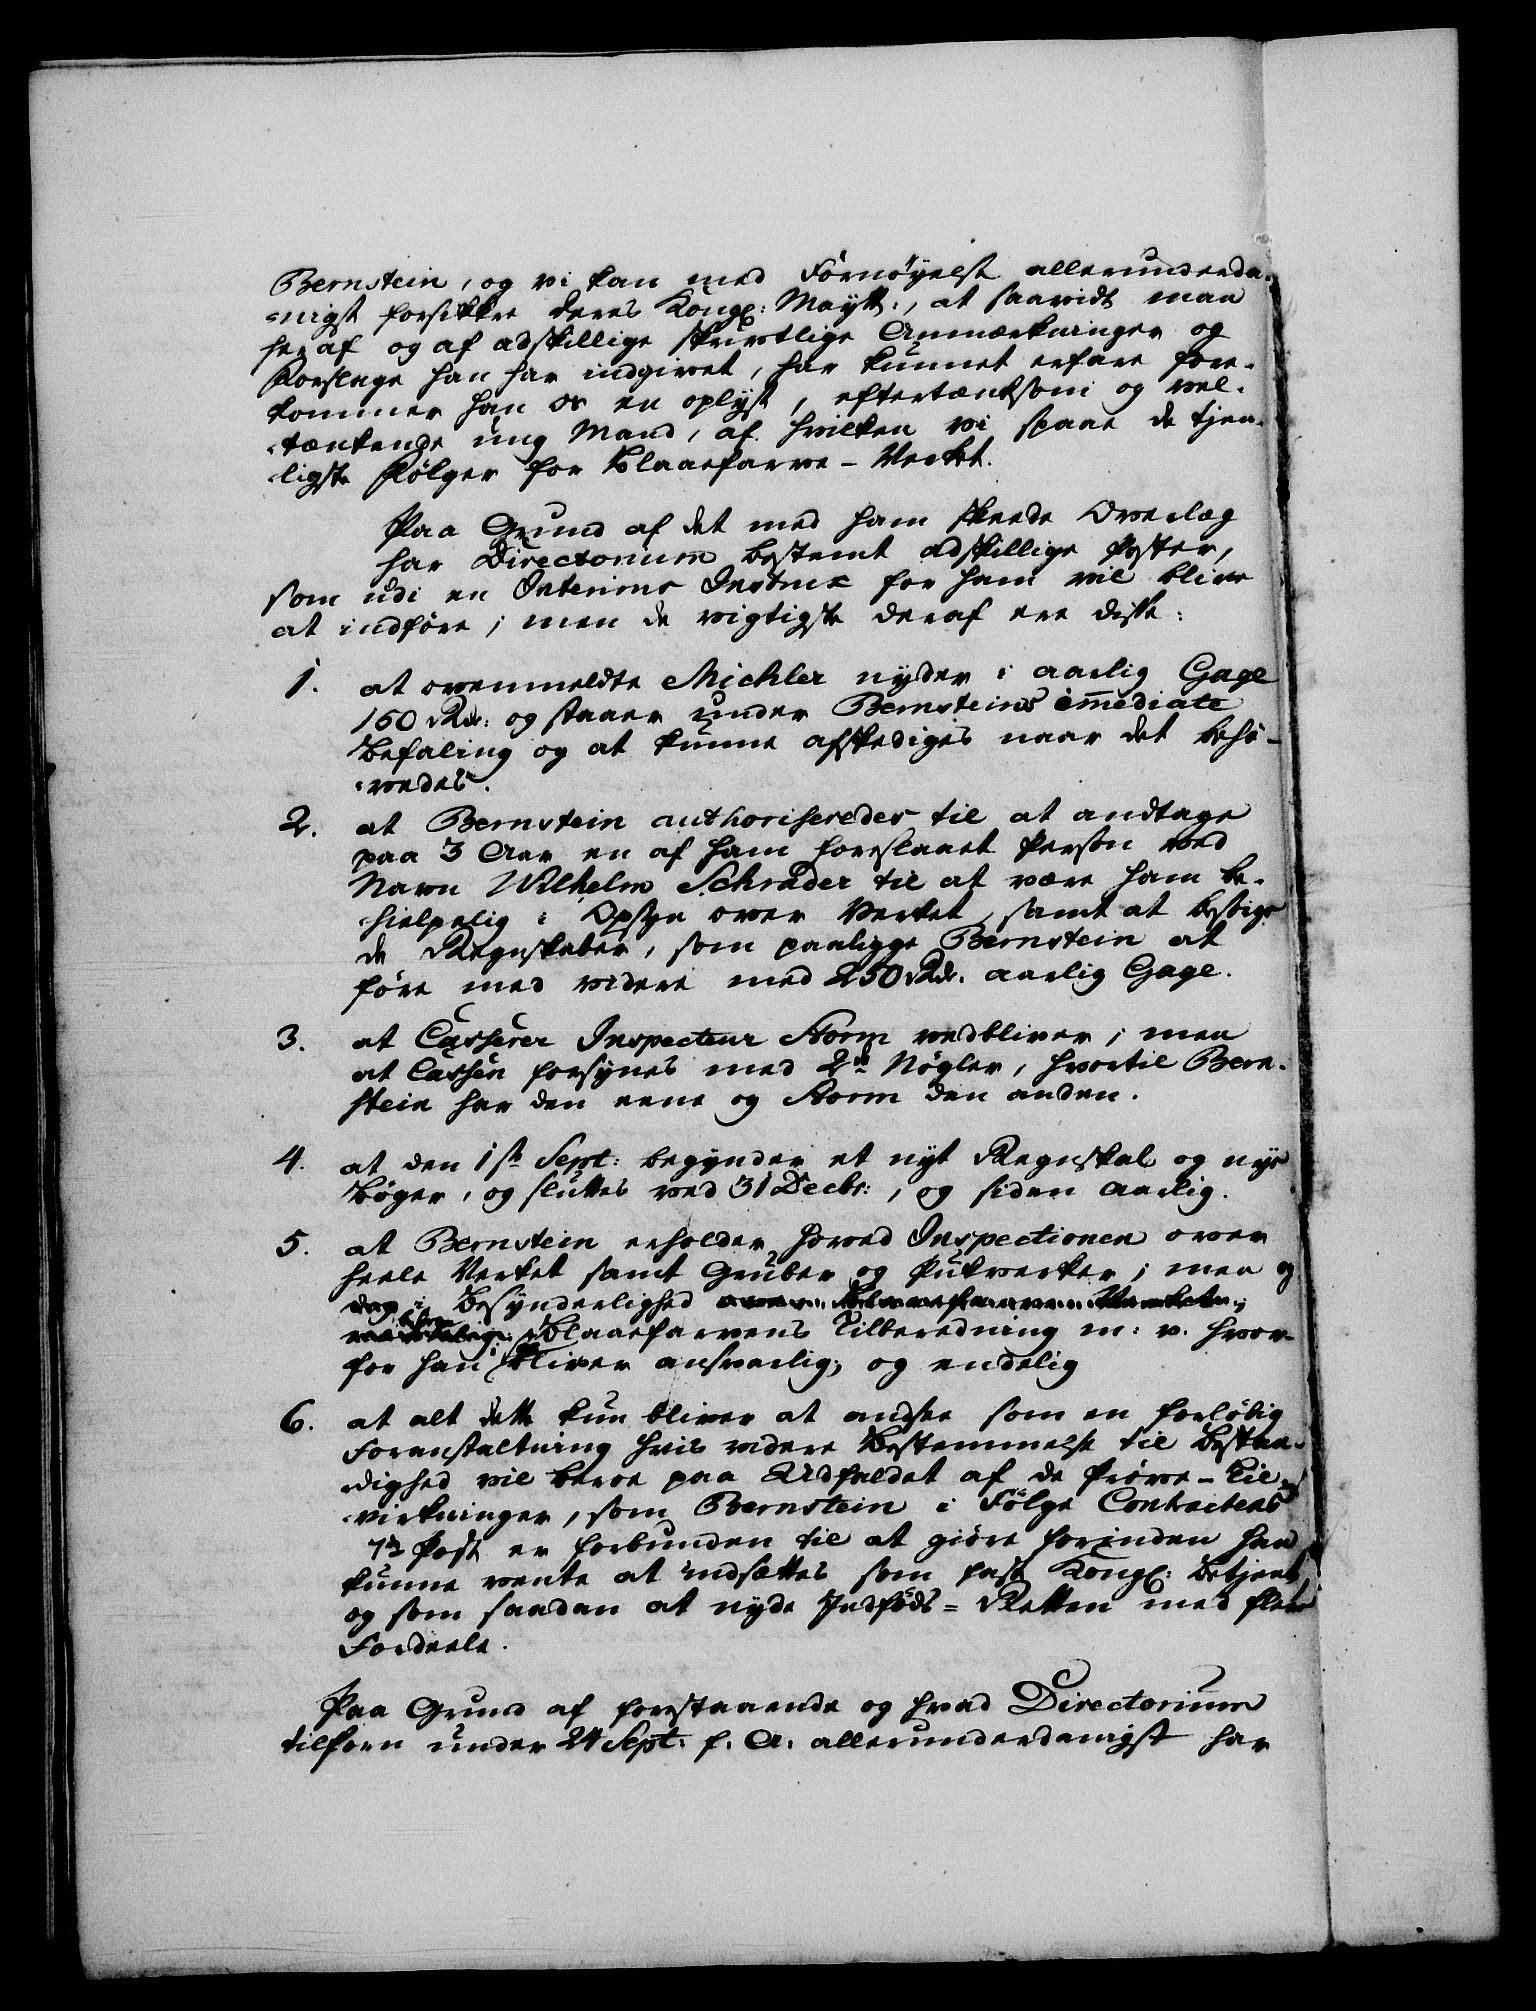 Bernstein, og vi kan med Fornöyelse allerunderda-
=nigst forsikkre Deres Kongl: Maytt:, at saavidt man
heraf og af adskillige skrivtlige Anmærkninger og
Forslage han har indgivet, har kunnet erfare fore-
kommer han os en oplyst, eftertænksom og vel-
tænkende ung Mand, af hvilken vi spaae de tjen-
ligste Fölger for Blaaefarve-Verket.
Paa Grund af det med ham skeede Overlæg
har Directorium bestemt adskillige Poster,
som udi en Interims Instrux for ham vil blive
at indföre; men de vigtigste deraf ere disse:
1. at ovenmeldte Michler nyder i aarlig Gage
150 Rdr: og staaer under Bernsteins immediate
Befaling og at kunne afskediges naar det behö-
=vedes.
2. at Bernstein authoriseredes til at andtage
paa 3 Aar en af ham foreslaaet Person ved
Navn Wilhelm Schrader til at være ham be-
hielpelig i Opsyn over Verket, samt at besörge
de Regnskaber, som paaligge Bernstein at
före med videre med 250 Rdr. aarlig Gage.
3. at Casserer Inspecteur Storm vedbliver; men
at Cassen forsynes med 2de Nögler, hvortil Bern-
stein har den eene og Storm den anden.
4. at den 1ste Sept: begynder et nyt Regnskab og nye
Böger, og sluttes ved 31 Decbr:, og siden aarlig.
5. at Bernstein erholder Hoved Inspectionen over
heele Verket samt Gruber og Pukverker; men og
i Besynderlighed over Blaaefarve Verket;
Blaaefarvens Tilberedning m: v. hvor-
for han bliver ansvarlig; og endelig
6. at alt dette kun bliver at ansee som en forlöbig
Foranstaltning hvis videre Bestemmelse til Bestan-
dighed vil beroe paa Udfaldet af de Pröve-Til-
virkninger, som Bernstein i Fölge Contractens
7de Post er forbunden til at giöre forinden han
kunne vente at indsættes som fast Kongl: Betjent,
og som saadan at nyde Indföds=Retten med flere
Fordeele.
Paa Grund af forestaaende og hvad Directorium
tilforn under 24 Sept: f. A: allerunderdanigst har